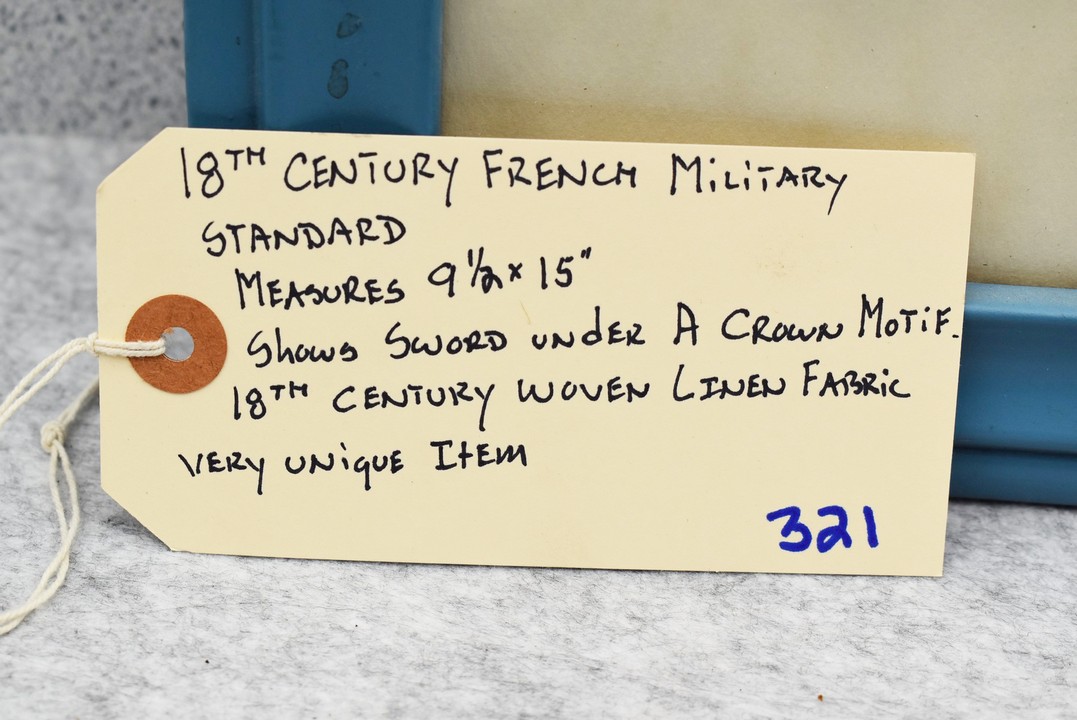 18TH CENTURY FRENCH MiLiTARY
STANDARD
MEASURES 9 1/2 x 15"
Shows SWORD UNdER A CROWN MOTiF.
18TH CENTURY WOVEN LINEN FABRiC
VERY UNiQUE ItEM
321